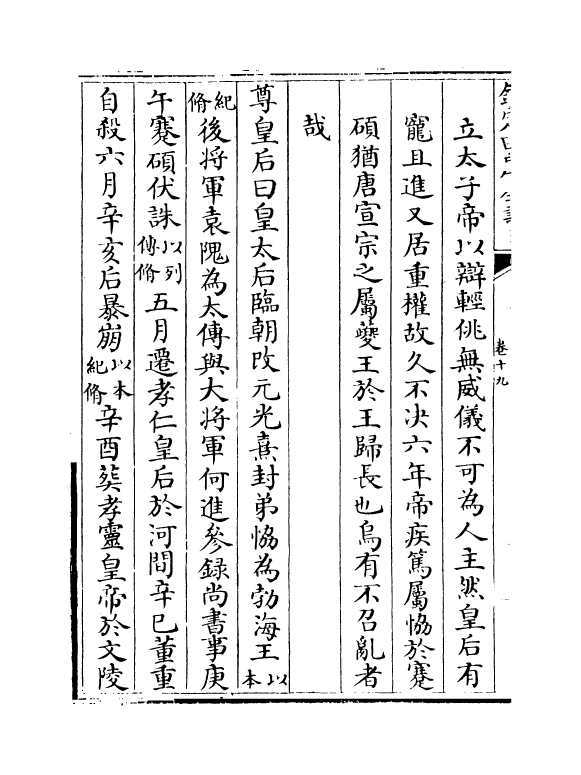 欽定四庫全書
卷十九
立太子帝以辯輕佻無威儀不可為人主然皇后有
寵且進又居重權故久不決六年帝疾篤屬恊於蹇
碩猶唐宣宗之屬夔王於王歸長也烏有不召亂者
哉
尊皇后曰皇太后臨朝改元光熹封弟恊為勃海王以本
紀脩後將軍袁隗為太傅與大將軍何進參録尚書事庚
午蹇碩伏誅以列傳脩五月遷孝仁皇后於河間辛巳董重
自殺六月辛亥后暴崩以本紀脩辛酉葬孝靈皇帝於文陵